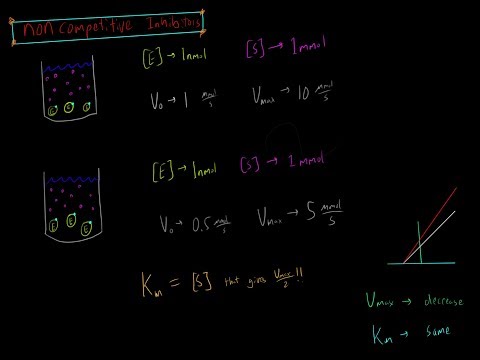 non competitive Inhibitors
[E] → 1nmol [S] → 1mmol
V₀ → 1 mmol/s Vmax → 10 mmol/s
E E E
[E] → 1nmol [S] → 1mmol
V₀ → 0.5 mmol/s Vmax → 5 mmol/s
E E E
Km = [S] that gives Vmax/2 !!
Vmax → decrease
Km → same